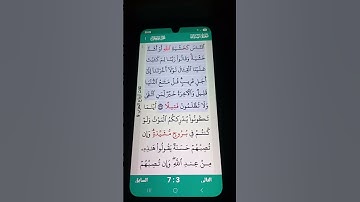 ٱلنَّاسَ كَخَشۡيَةِ ٱللَّهِ أَوۡ أَشَدَّ
خَشۡيَةٗۚ وَقَالُواْ رَبَّنَا لِمَ كَتَبۡتَ
عَلَيۡنَا ٱلۡقِتَالَ لَوۡلَآ أَخَّرۡتَنَآ إِلَىٰٓ
أَجَلٖ قَرِيبٖۗ قُلۡ مَتَٰعُ ٱلدُّنۡيَا
قَلِيلٞ وَٱلۡأٓخِرَةُ خَيۡرٞ لِّمَنِ ٱتَّقَىٰ
وَلَا تُظۡلَمُونَ فَتِيلًا ۝ أَيۡنَمَا
تَكُونُواْ يُدۡرِككُّمُ ٱلۡمَوۡتُ وَلَوۡ
كُنتُمۡ فِي بُرُوجٖ مُّشَيَّدَةٖۗ وَإِن
تُصِبۡهُمۡ حَسَنَةٞ يَقُولُواْ هَٰذِهِۦ
مِنۡ عِندِ ٱللَّهِۖ وَإِن تُصِبۡهُمۡ
التالي 7:3 السابق